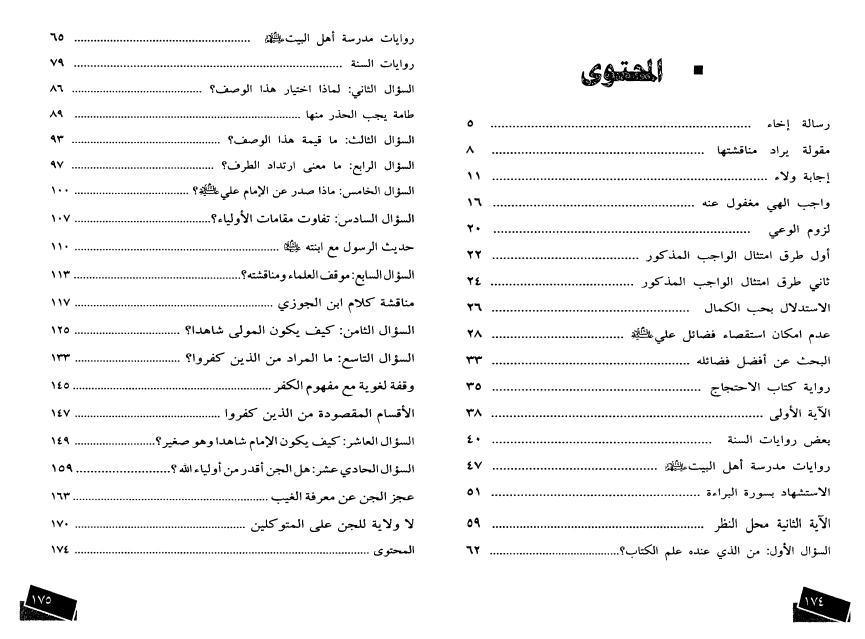 ■ المحتوى
رسالة إخاء ........ ٥
مقولة يراد مناقشتها ........ ٨
إجابة ولاء ........ ١١
واجب الهي مغفول عنه ........ ١٦
لزوم الوعي ........ ٢٠
أول طرق امتثال الواجب المذكور ........ ٢٢
ثاني طرق امتثال الواجب المذكور ........ ٢٤
الاستدلال بحب الكمال ........ ٢٦
عدم امكان استقصاء فضائل علي ........ ٢٨
البحث عن أفضل فضائله ........ ٣٣
رواية كتاب الاحتجاج ........ ٣٥
الآية الأولى ........ ٣٨
بعض روايات السنة ........ ٤٠
روايات مدرسة أهل البيت ........ ٤٧
الاستشهاد بسورة البراءة ........ ٥١
الآية الثانية محل النظر ........ ٥٩
السؤال الأول: من الذي عنده علم الكتاب؟ ........ ٦٢
١٧٤
روايات مدرسة أهل البيت ........ ٦٥
روايات السنة ........ ٧٩
السؤال الثاني: لماذا اختيار هذا الوصف؟ ........ ٨٦
طامة يجب الحذر منها ........ ٨٩
السؤال الثالث: ما قيمة هذا الوصف؟ ........ ٩٣
السؤال الرابع: ما معنى ارتداد الطرف؟ ........ ٩٧
السؤال الخامس: ماذا صدر عن الإمام علي؟ ........ ١٠٠
السؤال السادس: تفاوت مقامات الأولياء؟ ........ ١٠٧
حديث الرسول مع ابنته ........ ١١٠
السؤال السابع: موقف العلماء ومناقشته؟ ........ ١١٣
مناقشة كلام ابن الجوزي ........ ١١٧
السؤال الثامن: كيف يكون المولى شاهدا؟ ........ ١٢٥
السؤال التاسع: ما المراد من الذين كفروا؟ ........ ١٣٣
وقفة لغوية مع مفهوم الكفر ........ ١٤٥
الأقسام المقصودة من الذين كفروا ........ ١٤٧
السؤال العاشر: كيف يكون الإمام شاهدا وهو صغير؟ ........ ١٤٩
السؤال الحادي عشر: هل الجن أقدر من أولياء الله؟ ........ ١٥٩
عجز الجن عن معرفة الغيب ........ ١٦٣
لا ولاية للجن على المتوكلين ........ ١٧٠
المحتوى ........ ١٧٤
١٧٥